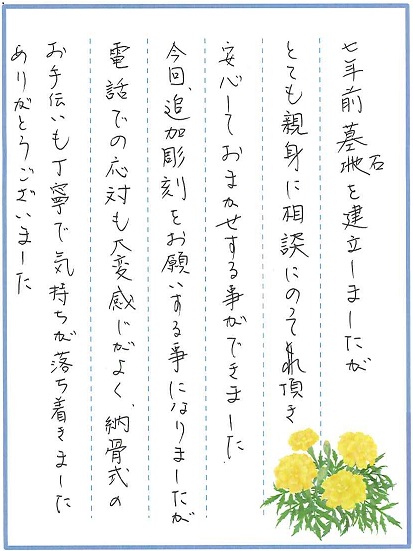 七年前墓石を建立しましたが
とても親身に相談にのって頂き
安心しておまかせする事ができました
今回、追加彫刻をお願いする事になりましたが
電話での応対も大変感じがよく、納骨式の
お手伝いも丁寧で気持ちが落ち着きました
ありがとうございました